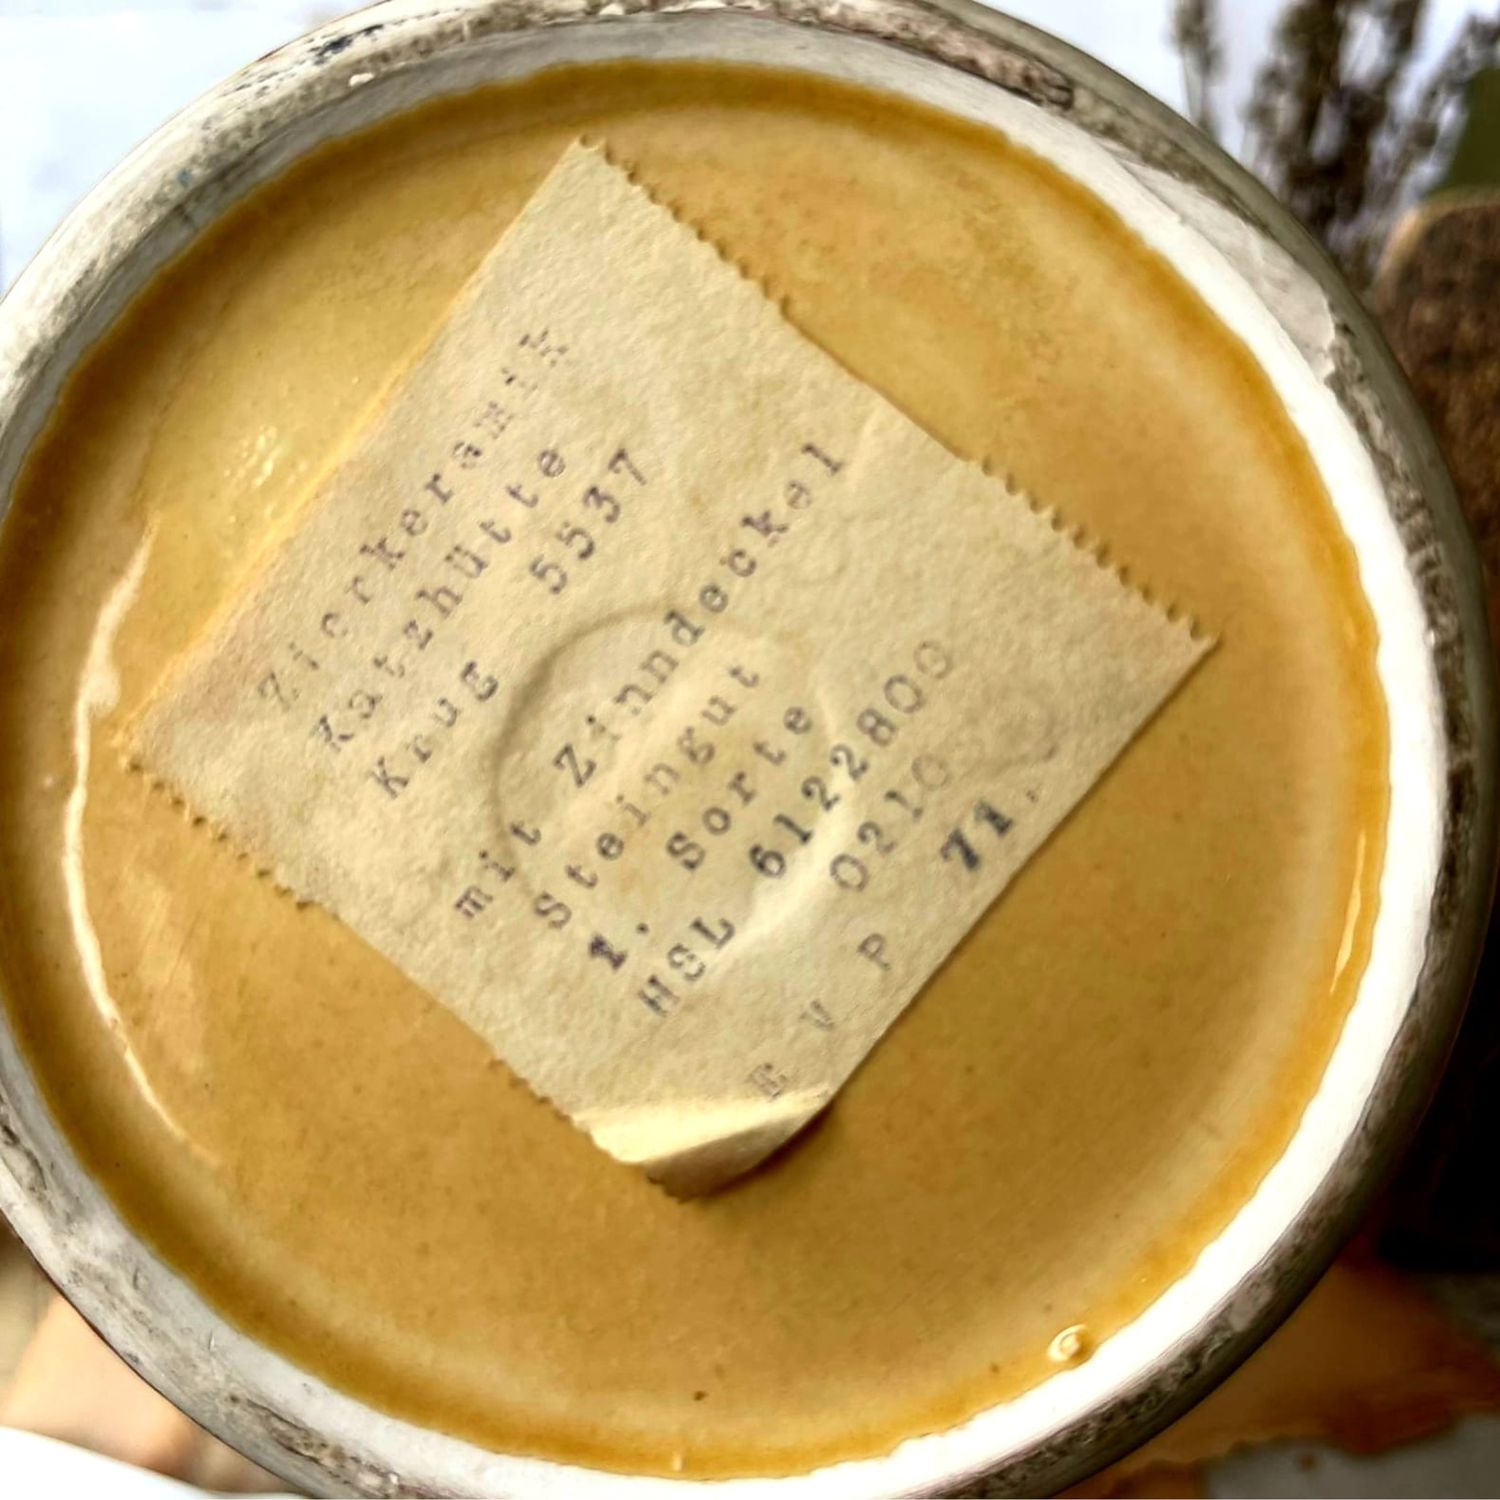 Zierkeramik
Katzhütte
Krug 5537
mit Zinndeckel
Steingut
1. Sorte
HSL 6122800
0210
E V P 71.